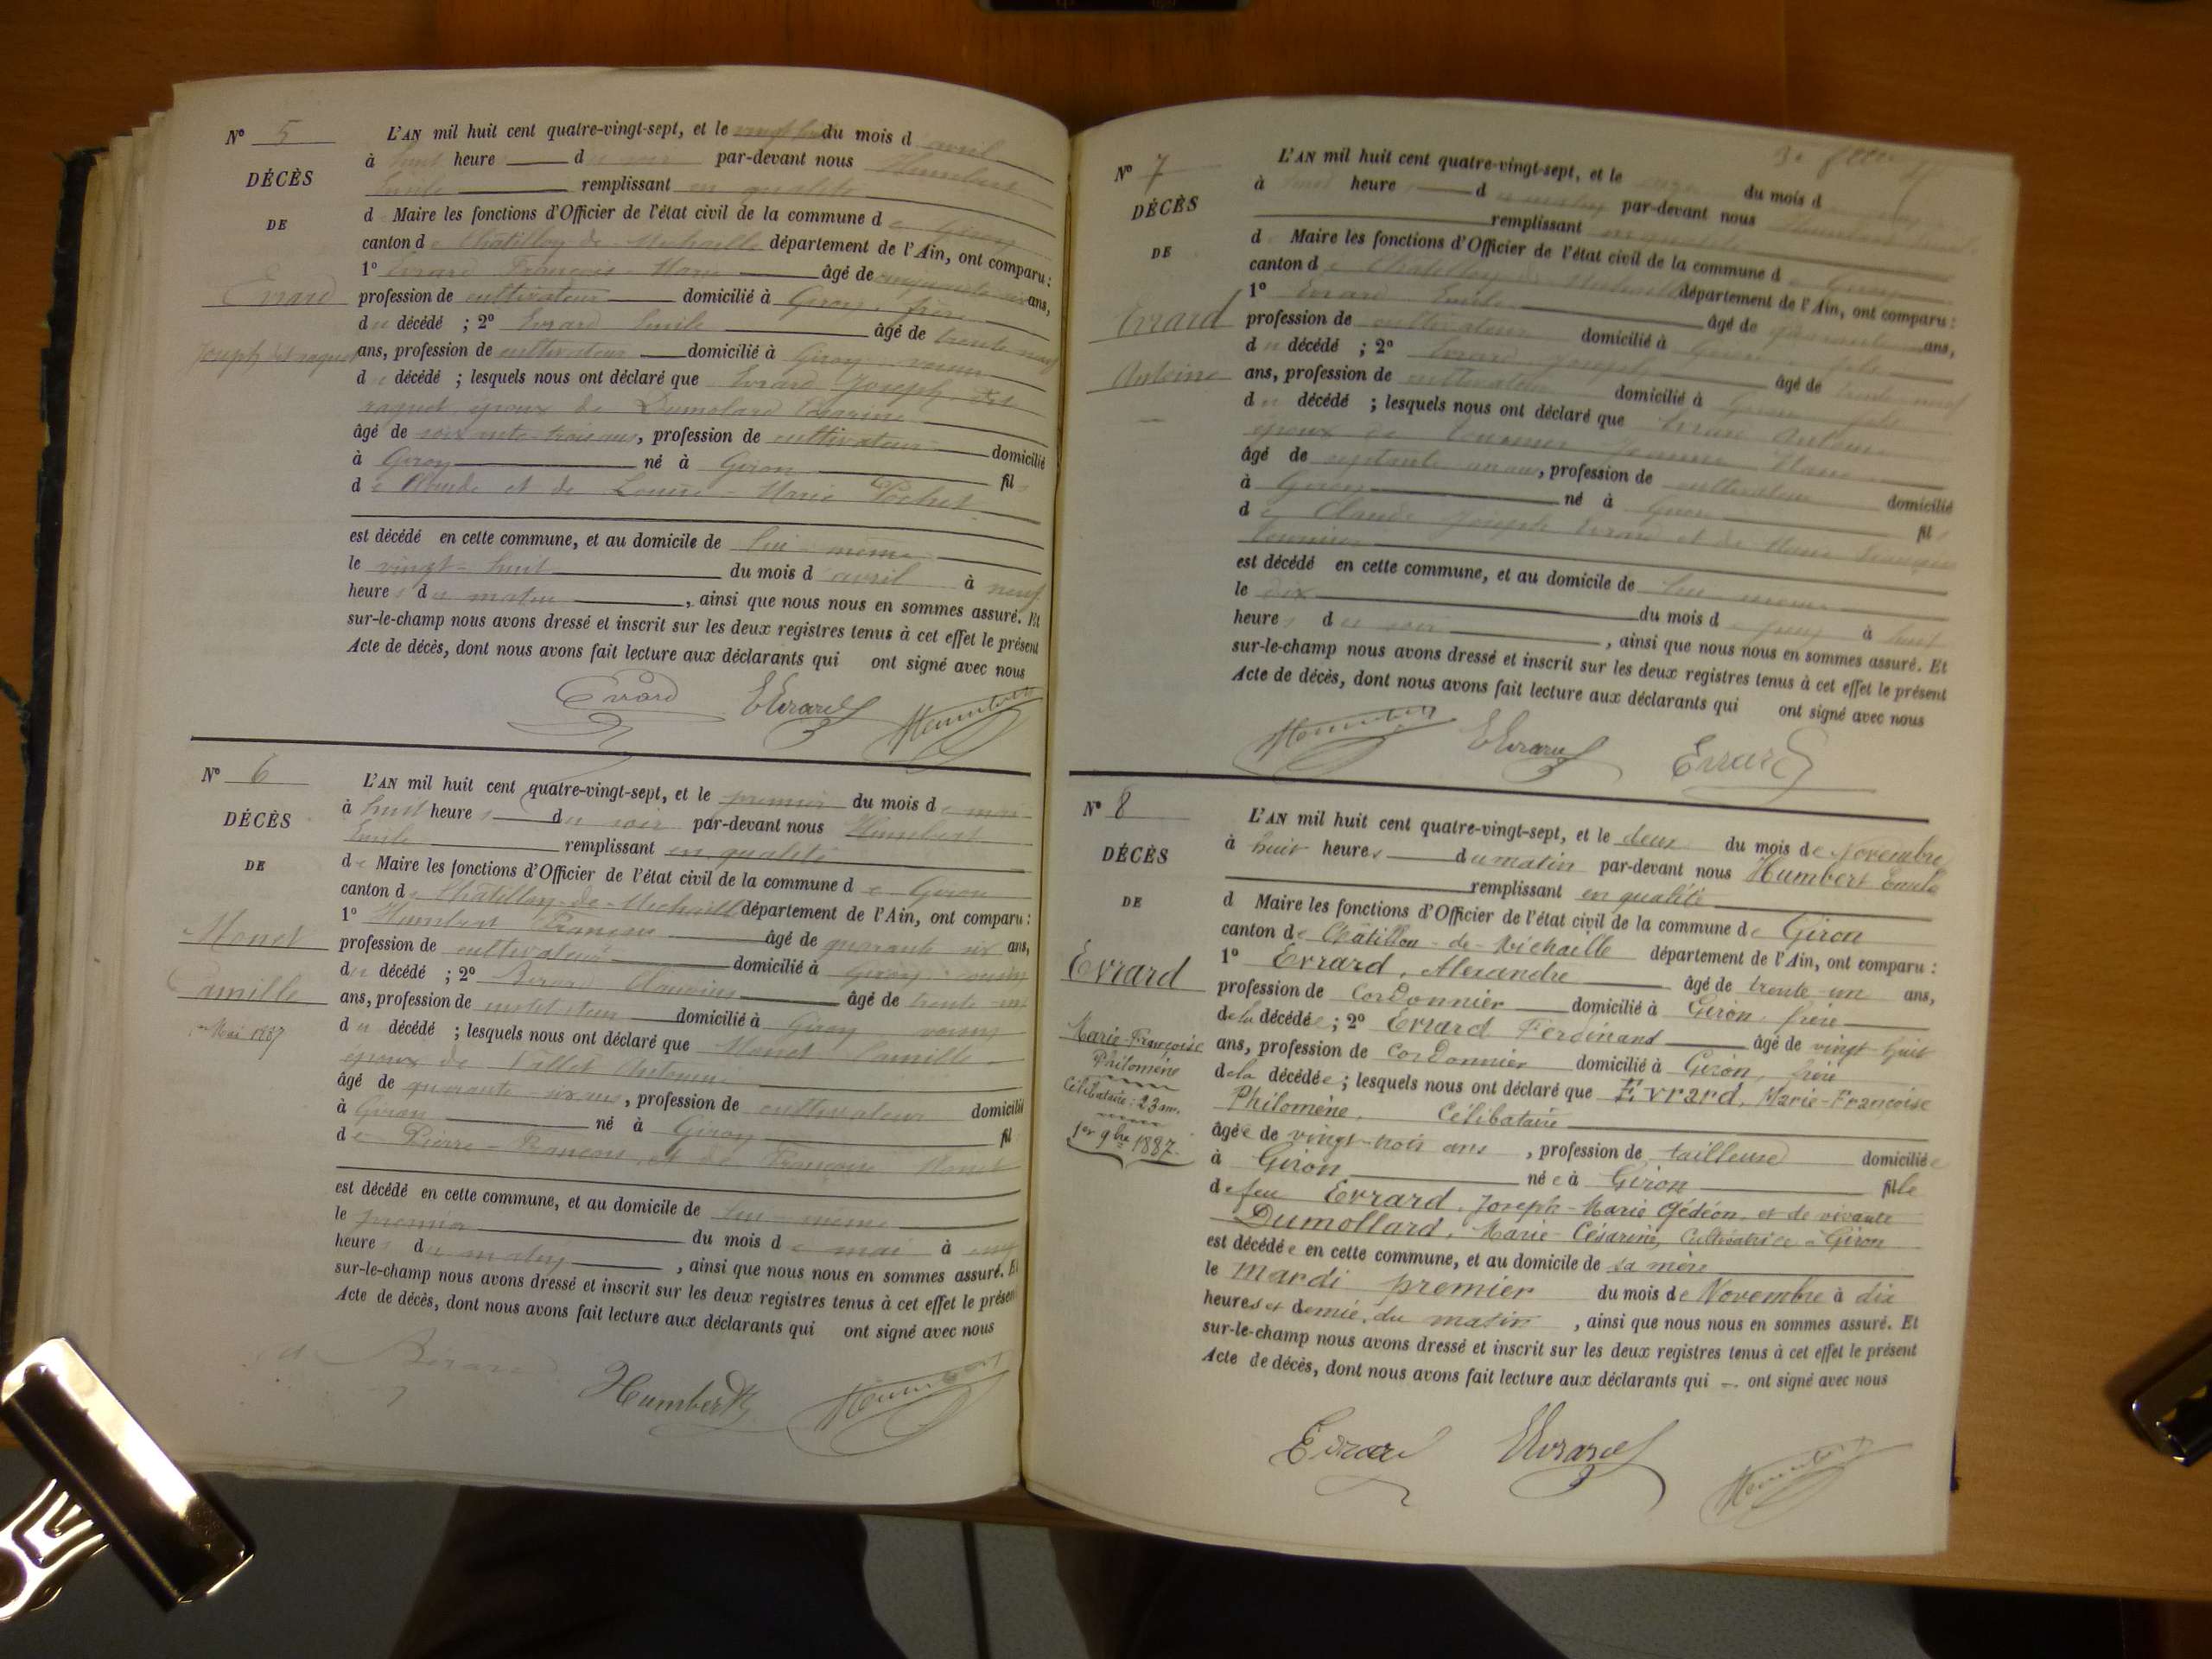 N° 5
DÉCÈS
DE
Evrard
Joseph dit raquet
L'AN mil huit cent quatre-vingt-sept, et le vingt huit du mois d avril
à huit heure du soir par-devant nous Humbert
Emile remplissant en qualité
d Maire les fonctions d'Officier de l'état civil de la commune de Giron
canton de Châtillon de Michaille département de l'Ain, ont comparu :
1° Evrard François Marie âgé de cinquante six ans,
profession de cultivateur domicilié à Giron, frère
du décédé ; 2° Evrard Emile âgé de trente neuf
ans, profession de cultivateur domicilié à Giron
d décédé ; lesquels nous ont déclaré que Evrard Joseph dit
raquet époux de Dumolard Césarine
âgé de soixante trois ans, profession de cultivateur domicilié
à Giron né à Giron fils
de Claude et de Louise-Marie
est décédé en cette commune, et au domicile de lui-même
le vingt-huit du mois d avril à neuf
heures du matin, ainsi que nous nous en sommes assuré. Et
sur-le-champ nous avons dressé et inscrit sur les deux registres tenus à cet effet le présent
Acte de décès, dont nous avons fait lecture aux déclarants qui ont signé avec nous
Evrard E Evrard Humbert
N° 6
DÉCÈS
DE
Monet
Camille
1er Mai 1887
L'AN mil huit cent quatre-vingt-sept, et le premier du mois de mai
à huit heures du soir par-devant nous Humbert
Emile remplissant en qualité
de Maire les fonctions d'Officier de l'état civil de la commune de Giron
canton de Châtillon-de-Michaille département de l'Ain, ont comparu :
1° Humbert François âgé de quarante six ans,
profession de cultivateur domicilié à Giron, cousin
du décédé ; 2° âgé de trente-un
ans, profession de instituteur domicilié à Giron voisin
du décédé ; lesquels nous ont déclaré que Monet Camille
époux de
âgé de quarante six ans, profession de cultivateur domicilié
à Giron né à Giron fil
de Pierre-François et de Françoise Monet
est décédé en cette commune, et au domicile de lui-même
le premier du mois de mai à cinq
heures du matin, ainsi que nous nous en sommes assuré. Et
sur-le-champ nous avons dressé et inscrit sur les deux registres tenus à cet effet le présent
Acte de décès, dont nous avons fait lecture aux déclarants qui ont signé avec nous
Humbert Humbert
N° 7
DÉCÈS
DE
Evrard
Antoine
L'AN mil huit cent quatre-vingt-sept, et le onze du mois d
à heure du matin par-devant nous Humbert
remplissant en qualité
d Maire les fonctions d'Officier de l'état civil de la commune de Giron
canton de Châtillon de Michaille département de l'Ain, ont comparu :
1° Evrard Emile âgé de quarante ans,
profession de cultivateur domicilié à Giron fils
du décédé ; 2° Evrard Joseph âgé de trente neuf
ans, profession de cultivateur domicilié à Giron fils
du décédé ; lesquels nous ont déclaré que Evrard Antoine
époux de Tournier Jeanne Marie
âgé de septante un ans, profession de cultivateur domicilié
à Giron né à Giron fils
de Claude Joseph Evrard et de Marie Françoise
Tournier
est décédé en cette commune, et au domicile de lui-même
le dix du mois d à huit
heures du soir, ainsi que nous nous en sommes assuré. Et
sur-le-champ nous avons dressé et inscrit sur les deux registres tenus à cet effet le présent
Acte de décès, dont nous avons fait lecture aux déclarants qui ont signé avec nous
Humbert E Evrard Evrard
N° 8
DÉCÈS
DE
Evrard
Marie-Françoise
Philomène
Célibataire : 23 ans.
1er 9bre 1887.
L'AN mil huit cent quatre-vingt-sept, et le deux du mois de Novembre
à huit heures du matin par-devant nous Humbert Emile
remplissant en qualité
d Maire les fonctions d'Officier de l'état civil de la commune de Giron
canton de Châtillon-de-Michaille département de l'Ain, ont comparu :
1° Evrard, Alexandre âgé de trente-un ans,
profession de Cordonnier domicilié à Giron, frère
de la décédée ; 2° Evrard Ferdinand âgé de vingt-huit
ans, profession de Cordonnier domicilié à Giron, frère
de la décédée ; lesquels nous ont déclaré que Evrard, Marie-Françoise
Philomène, Célibataire
âgée de vingt-trois ans, profession de tailleuse domiciliée
à Giron née à Giron fille
de feu Evrard, Joseph-Marie Gédéon, et de vivante
Dumollard, Marie-Césarine, Cultivatrice à Giron
est décédée en cette commune, et au domicile de sa mère
le mardi premier du mois de Novembre à dix
heures et demie, du matin, ainsi que nous nous en sommes assuré. Et
sur-le-champ nous avons dressé et inscrit sur les deux registres tenus à cet effet le présent
Acte de décès, dont nous avons fait lecture aux déclarants qui ont signé avec nous
Evrard Evrard Humbert